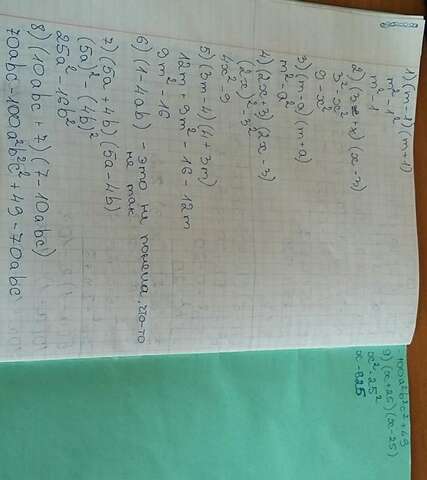 1) (m-1)(m+1)
m²-1²
m²-1
2) (3-x)(x-3)
3²-x²
9-x²
3) (m-a)(m+a)
m²-a²
4) (2x+3)(2x-3)
(2x)²-3²
4x²-9
5) (3m-4)(4+3m)
12m+9m²-16-12m
9m²-16
6) (1-4ab) - это не поняла, что-то
не так
7) (5a+4b)(5a-4b)
(5a)²-(4b)²
25a²-16b²
8) (10abc+7)(7-10abc)
70abc-100a²b²c²+49-70abc
100a²b²c²+49
9) (x+25)(x-25)
x²-25²
x-625